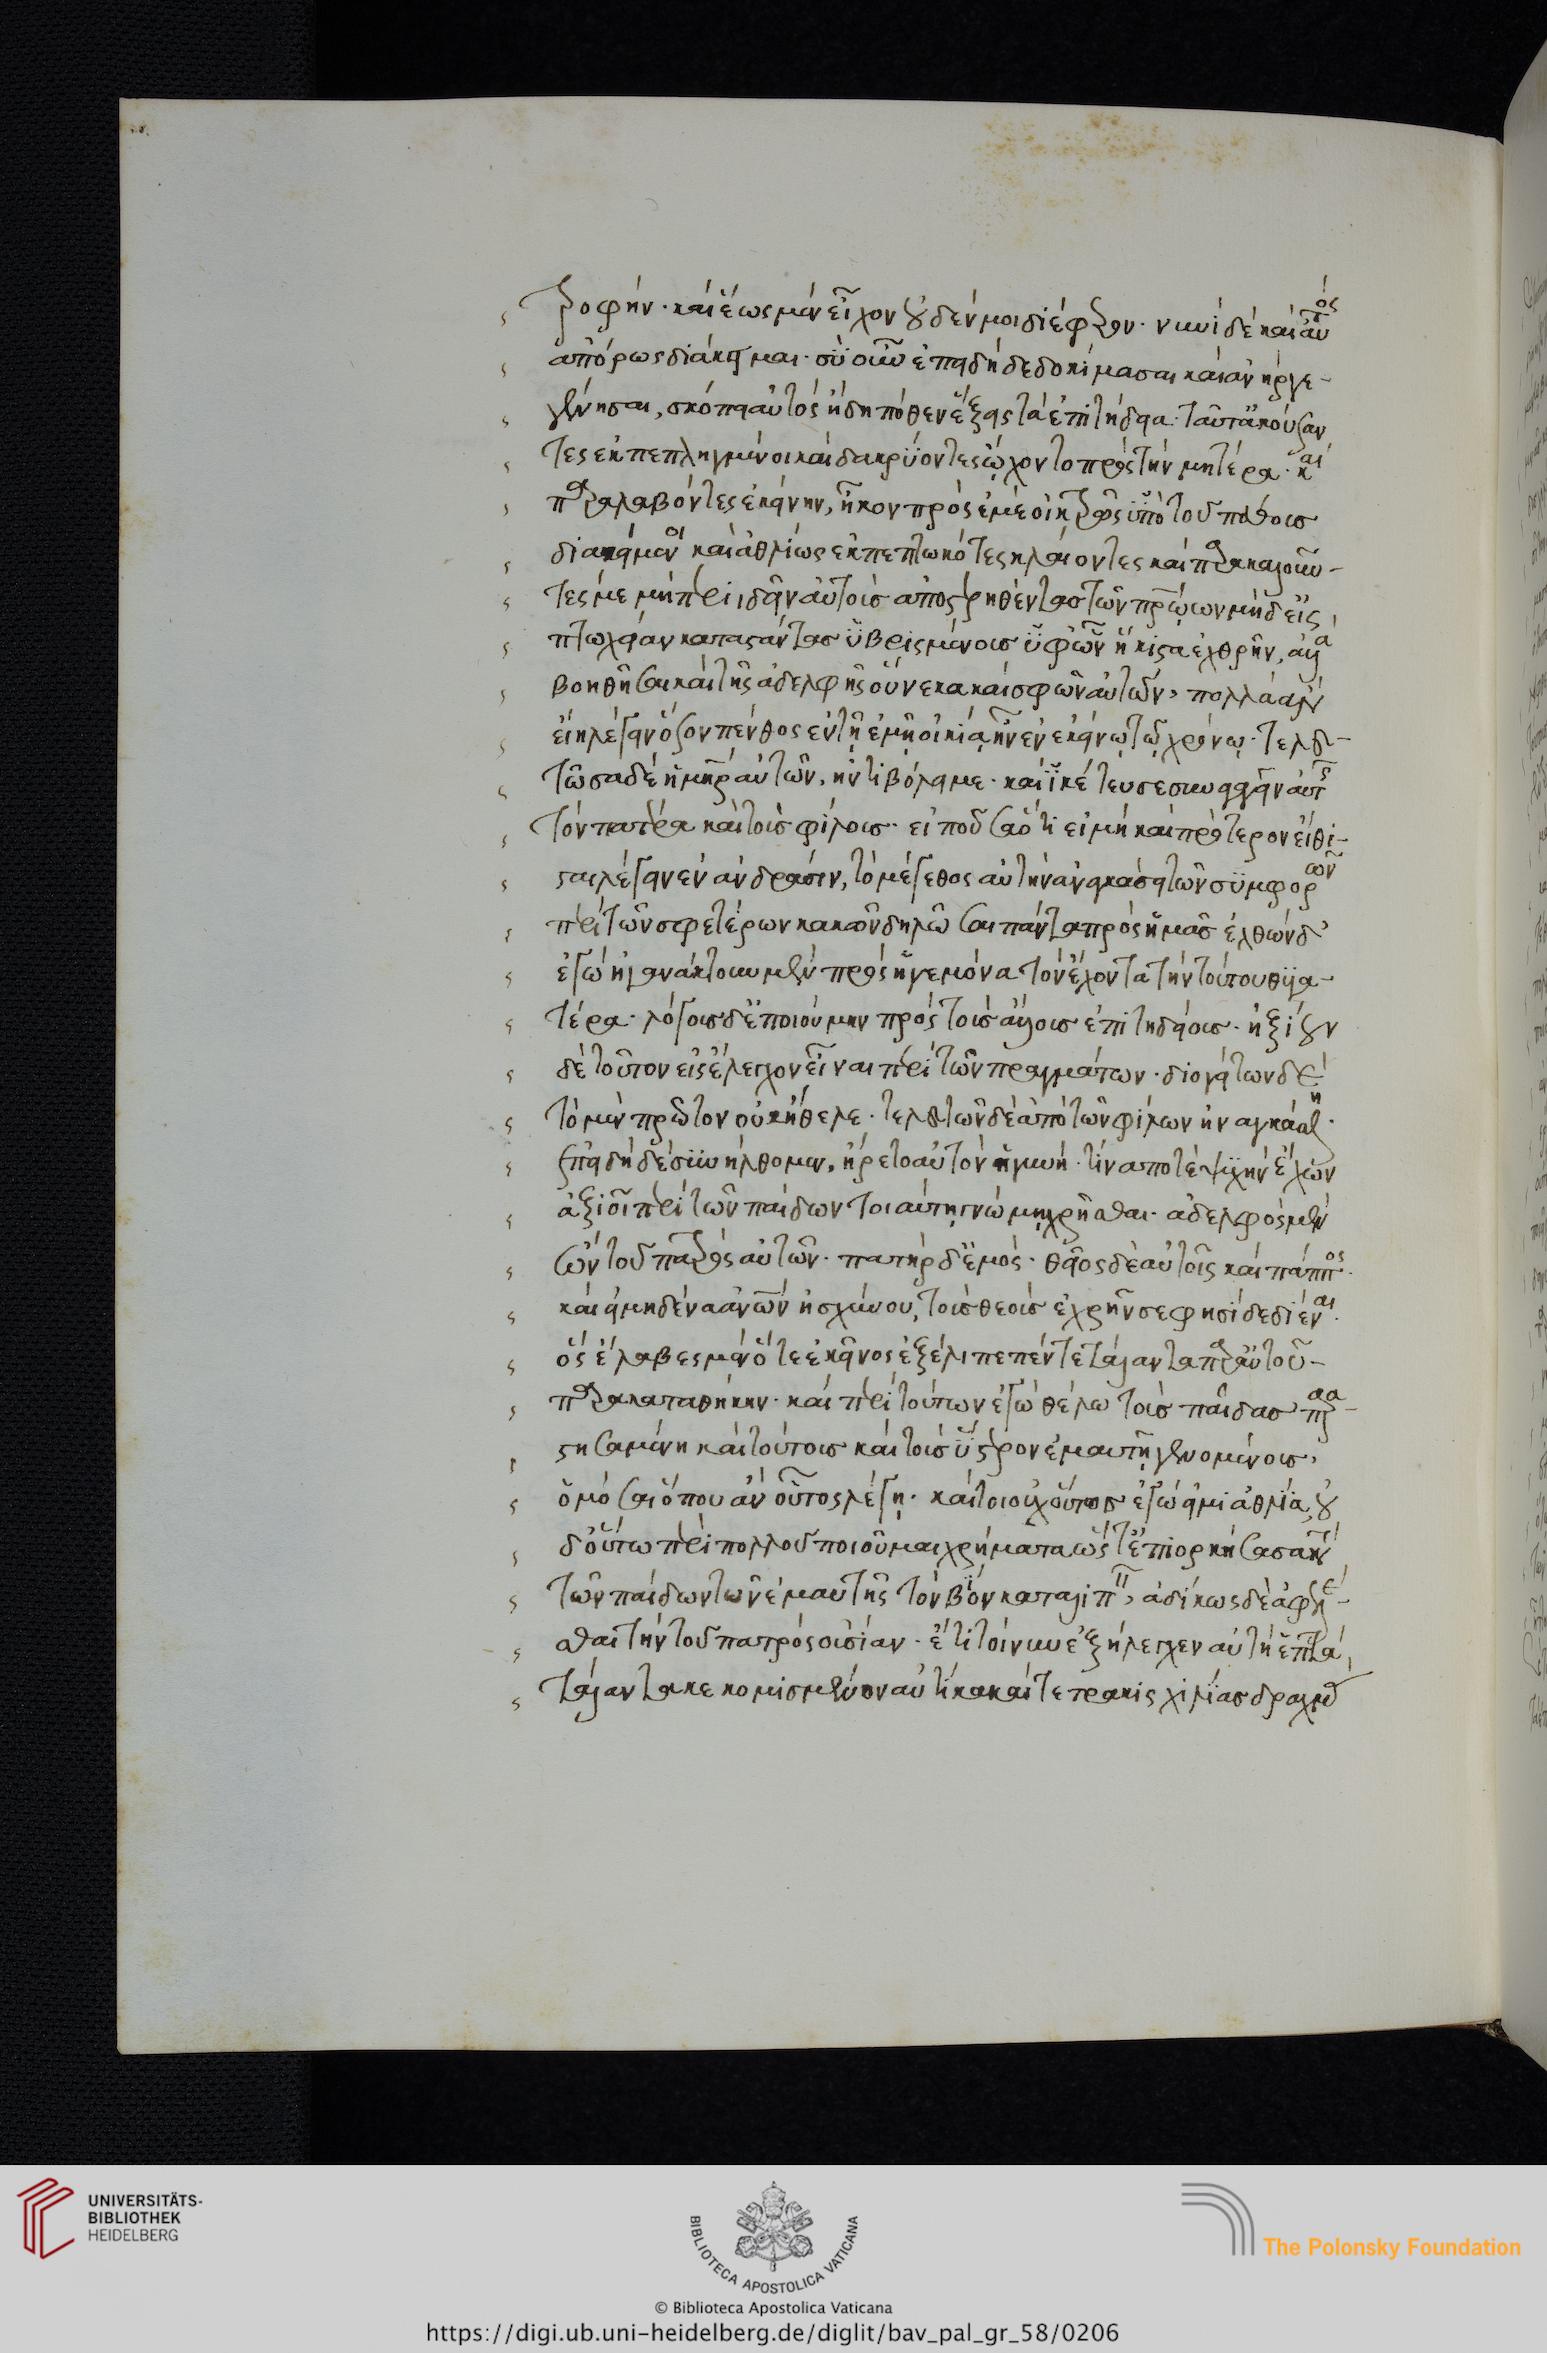 τροφήν· καὶ ἕως μὲν εἶχον οὐδέν μοι διέφερον· νυνὶ δὲ καὶ αὐτὸς
ἀπόρως διάκειμαι· σὺ οὖν ἐπειδὴ δεδοκίμασαι καὶ ἀνὴρ γε-
γένησαι, σκόπει αὐτὸς ἤδη πόθεν ἕξεις τὰ ἐπιτήδεια· ταῦτ' ἀκούσαν
τες ἐκπεπληγμένοι καὶ δακρύοντες ᾤχοντο πρὸς τὴν μητέρα· καὶ
παραλαβόντες ἐκείνην, ἧκον πρὸς ἐμὲ οἰκτρῶς ὑπὸ τοῦ πάθους
διακείμενοι καὶ ἀθλίως ἐκπεπτωκότες κλαίοντες καὶ παρακαλοῦν-
τές με μὴ περιιδεῖν αὐτοὺς ἀποστερηθέντας τῶν πατρῴων μηδ' εἰς
πτωχείαν καταστάντας ὑβρισμένους ὑφ' ὧν ἥκιστα ἐχρῆν, ἀλλὰ
βοηθῆσαι καὶ τῆς ἀδελφῆς οὕνεκα καὶ σφῶν αὐτῶν, πολλὰ ἂν
εἴη λέγειν ὅσον πένθος ἐν τῇ ἐμῇ οἰκίᾳ ἦν ἐν ἐκείνῳ τῷ χρόνῳ· τελευ-
τῶσα δὲ ἡ μήτηρ αὐτῶν, ἠντιβόλει με· καὶ ἱκέτευσε συναγαγεῖν αὐτῆς
τὸν πατέρα καὶ τοὺς φίλους· εἰποῦσα ὅτι εἰ μὴ καὶ πρότερον εἴθι-
σται λέγειν ἐν ἀνδράσιν, τὸ μέγεθος αὐτὴν ἀναγκάσει τῶν συμφορῶν
περὶ τῶν σφετέρων κακῶν δηλῶσαι πάντα πρὸς ἡμᾶς ἐλθὼν δ'
ἐγὼ ἠγανάκτουν μὲν πρὸς ἡγεμόνα τὸν ἔχοντα τὴν τούτου θυγα-
τέρα· λόγους δ' ἐποιούμην πρὸς τοὺς ἄλλους ἐπιτηδείους· ἠξίουν
δὲ τοῦτον εἰς ἔλεγχον εἶναι περὶ τῶν πραγμάτων· διογείτων δὲ
τὸ μὲν πρῶτον οὐκ ἤθελε· τελευτῶν δὲ ἀπὸ τῶν φίλων ἠναγκάσθη·
ἐπειδὴ δὲ συνήλθομεν, ἤρετο αὐτὸν ἡ γυνή· τίνα ποτὲ ψυχὴν ἔχων
ἀξιοῖ περὶ τῶν παίδων τοιαύτῃ γνώμῃ χρῆσθαι· ἀδελφὸς μὲν
ὢν τοῦ πατρὸς αὐτῶν· πατὴρ δ' ἐμός· θεῖος δὲ αὐτοῖς καὶ πάππος·
καὶ εἰ μηδένα ἀνθρώπων ᾐσχύνου, τοὺς θεοὺς ἐχρῆν σε φησὶ δεδιέναι·
ὃς ἔλαβες μὲν ὅτε ἐκεῖνος ἐξέλιπε πέντε τάλαντα παρ' αὐτοῦ-
παρακαταθήκην· καὶ περὶ τούτων ἐγὼ θέλω τοὺς παῖδας παρα-
στησαμένη καὶ τούτους καὶ τοὺς ὕστερον ἐμαυτῇ γενομένους,
ὀμόσαι ὅπου ἂν οὗτος λέγῃ· καίτοι οὐχ οὕτως ἐγώ εἰμι ἀθλία, οὐ
δ' οὕτω περὶ πολλοῦ ποιοῦμαι χρήματα ὥστ' ἐπιορκήσασα κατὰ
τῶν παίδων τῶν ἐμαυτῆς τὸν βίον καταλιπεῖν, ἀδίκως δὲ ἀφελέ-
σθαι τὴν τοῦ πατρὸς οὐσίαν· ἔτι τοίνυν ἐξήλεγχεν αὐτὴ ἑπτὰ
τάλαντα κεκομισμένον αὐτίκα καὶ τετρακισχιλίας δραχμὰς
UNIVERSITÄTS-
BIBLIOTHEK
HEIDELBERG
BIBLIOTECA APOSTOLICA VATICANA
© Biblioteca Apostolica Vaticana
The Polonsky Foundation
https://digi.ub.uni-heidelberg.de/diglit/bav_pal_gr_58/0206